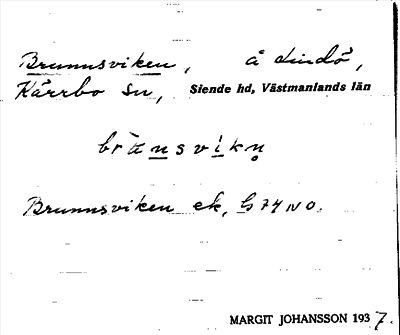 Brunnsviken, å
Kärrbo sn, Siende hd, Västmanlands län
Brunnsviken ek. G 74 NO.
MARGIT JOHANSSON 1937.